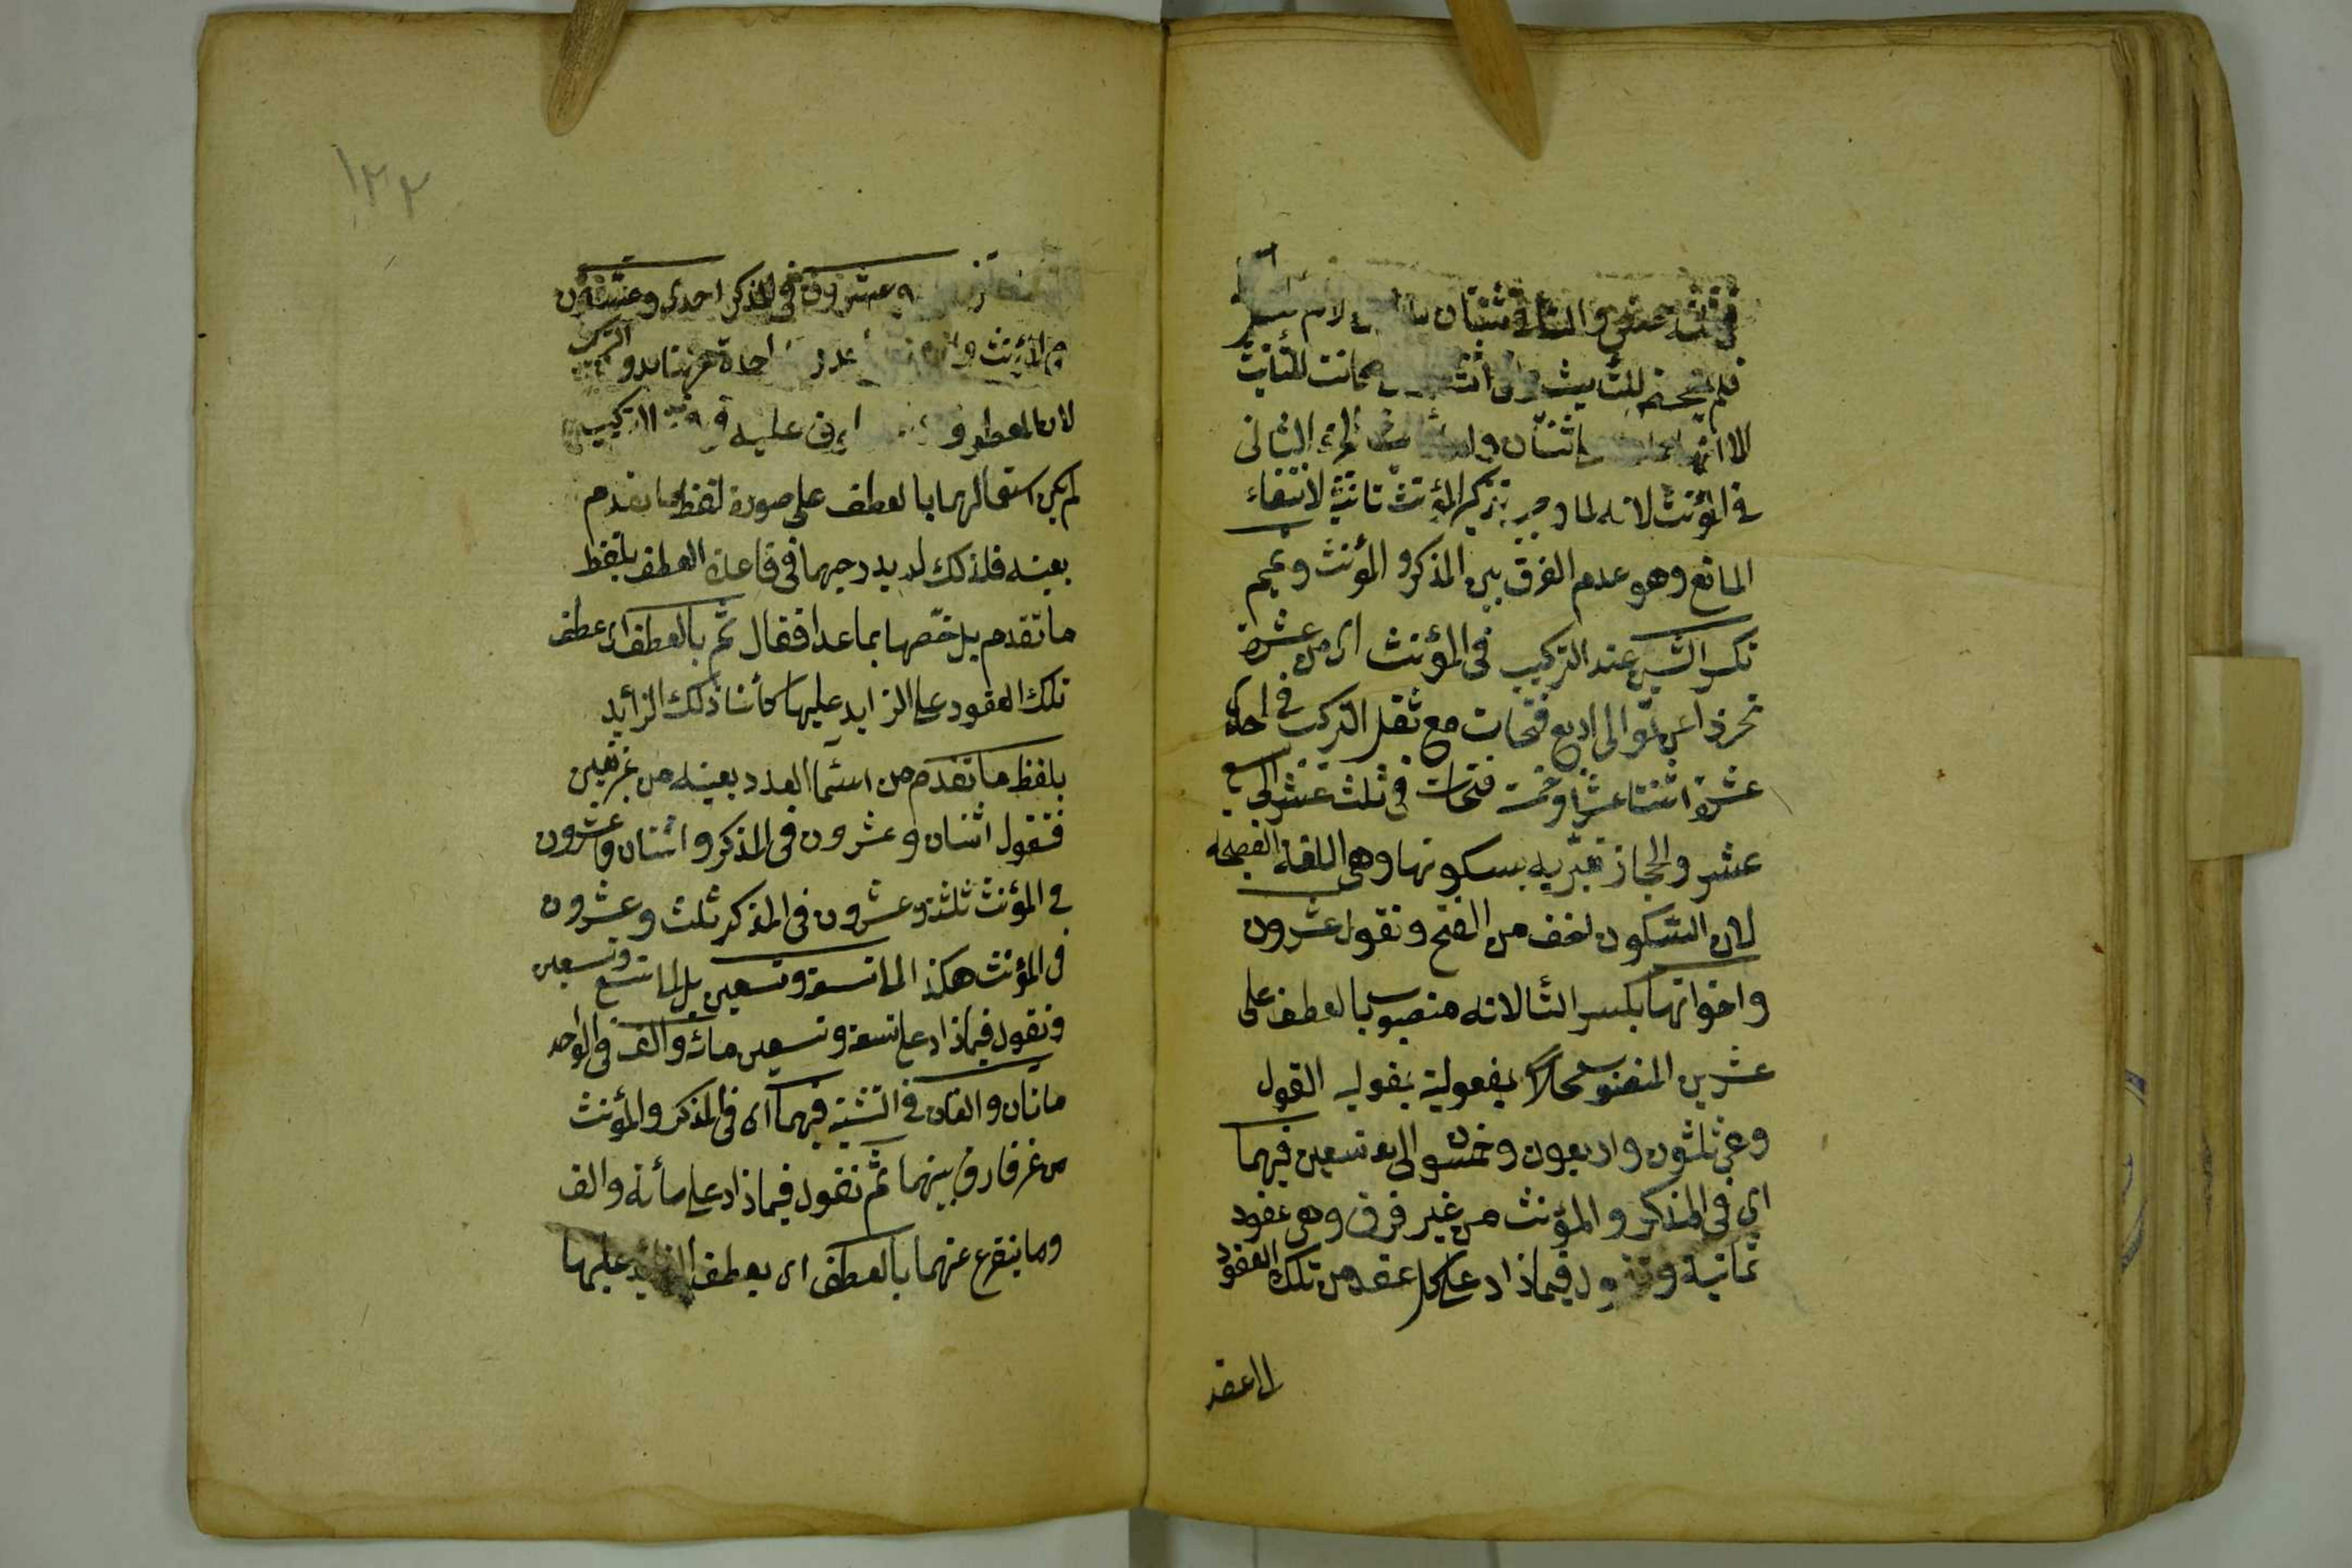 في ثلث عشر والتاء في ثنتان لام
فلم للتأنيث للتأنيث
الا انها اثنتان الجزء الثانى
في المؤنث لانه لما وجب تذكير المؤنث ثانيث لانتفاء
المانع وهو عدم الفرق بين المذكر والمؤنث وتميم
تكسر الشين عند التركيب في المؤنث اى من عشرة
تحرزا عن توالى اربع فتحات مع ثقل التركيب في احدى
عشرة اثنتا عشرة وخمس فتحات في ثلث عشر الى تسع
عشر والحجازيه بسكونها وهى اللغة الفصيحة
لان السكون اخف من الفتح وتقول عشرون
واخواتها بكسر التا لانه منصوب بالعطف على
عشرين المنصوب محلا بمفعولية بقوليه القول
وهى ثلثون واربعون وخمسون الى تسعين فيهما
اى في المذكر والمؤنث من غير فرق وهى عقود
ثمانية وتقول فيما زاد على كل عقد من تلك العقود
الى عقد
١٢٢
وعشرون في المذكر احدى وعشرون
في المؤنث احدة ههنا بدون التركيب
لان المعطوف عليه في التركيب
لم يكن استعمالهما بالعطف على صورة لفظ ما تقدم
بعينه فلذلك لم يدرجهما في قاعدة العطف بلفظ
ما تقدم بل خصها بما عدا فقال ثم بالعطف اى عطف
تلك العقود على الزايد عليها كائنا ذلك الزائد
بلفظ ما تقدم من اسماء العدد بعينه من غير تغيير
فتقول اثنان وعشرون في المذكر واثنتان وعشرون
في المؤنث ثلثة وعشرون في المذكر ثلث وعشرون
في المؤنث هكذا الى تسعة وتسعين بل الى تسع وتسعين
وتقول فيما زاد على تسعة وتسعين مائة والف في الواحد
مائتان والفان في التثنية فيهما اى في المذكر والمؤنث
من غير فارق بينهما ثم تقول فيما زاد على مأئة والف
وما يتفرع عنهما بالعطف اى بعطف الزائد عليهما